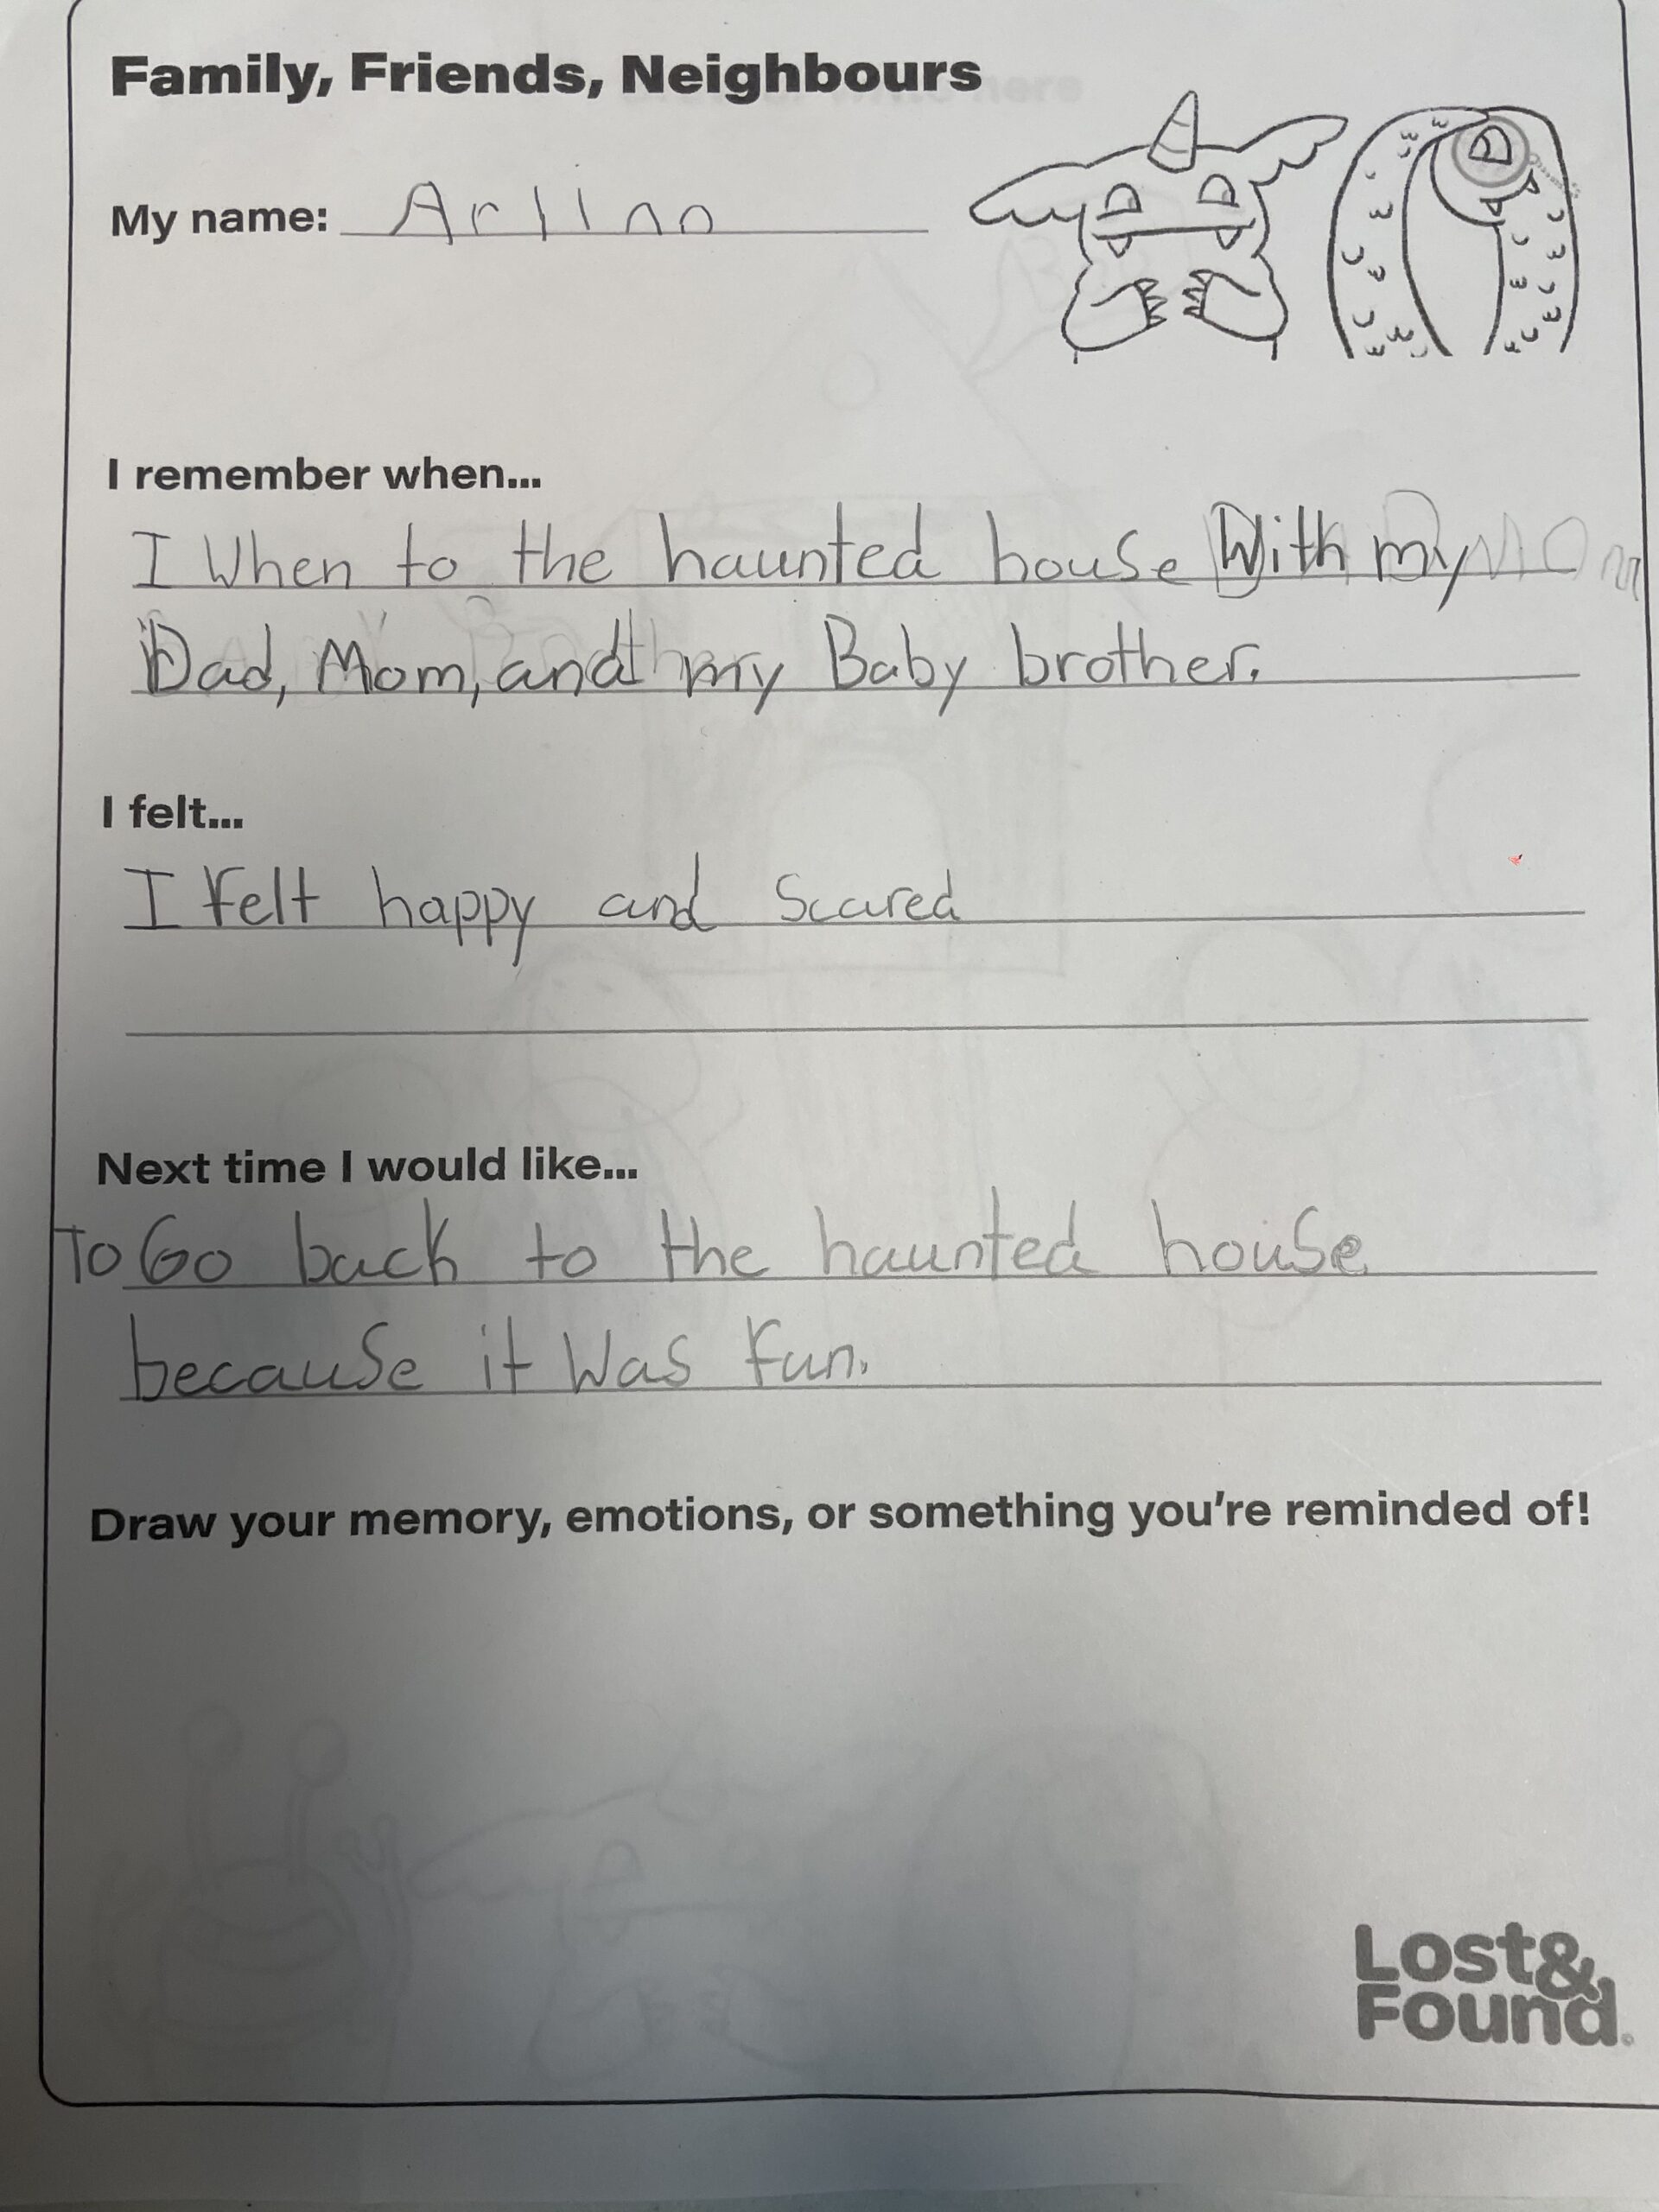 Family, Friends, Neighbours
My name:
I remember when...
I When to the haunted house With my
Dad, Mom, and my Baby brother.
I felt...
I Felt happy and Scared
Next time I would like...
To Go back to the haunted house
because it Was Fun.
Draw your memory, emotions, or something you're reminded of!
Lost&
Found